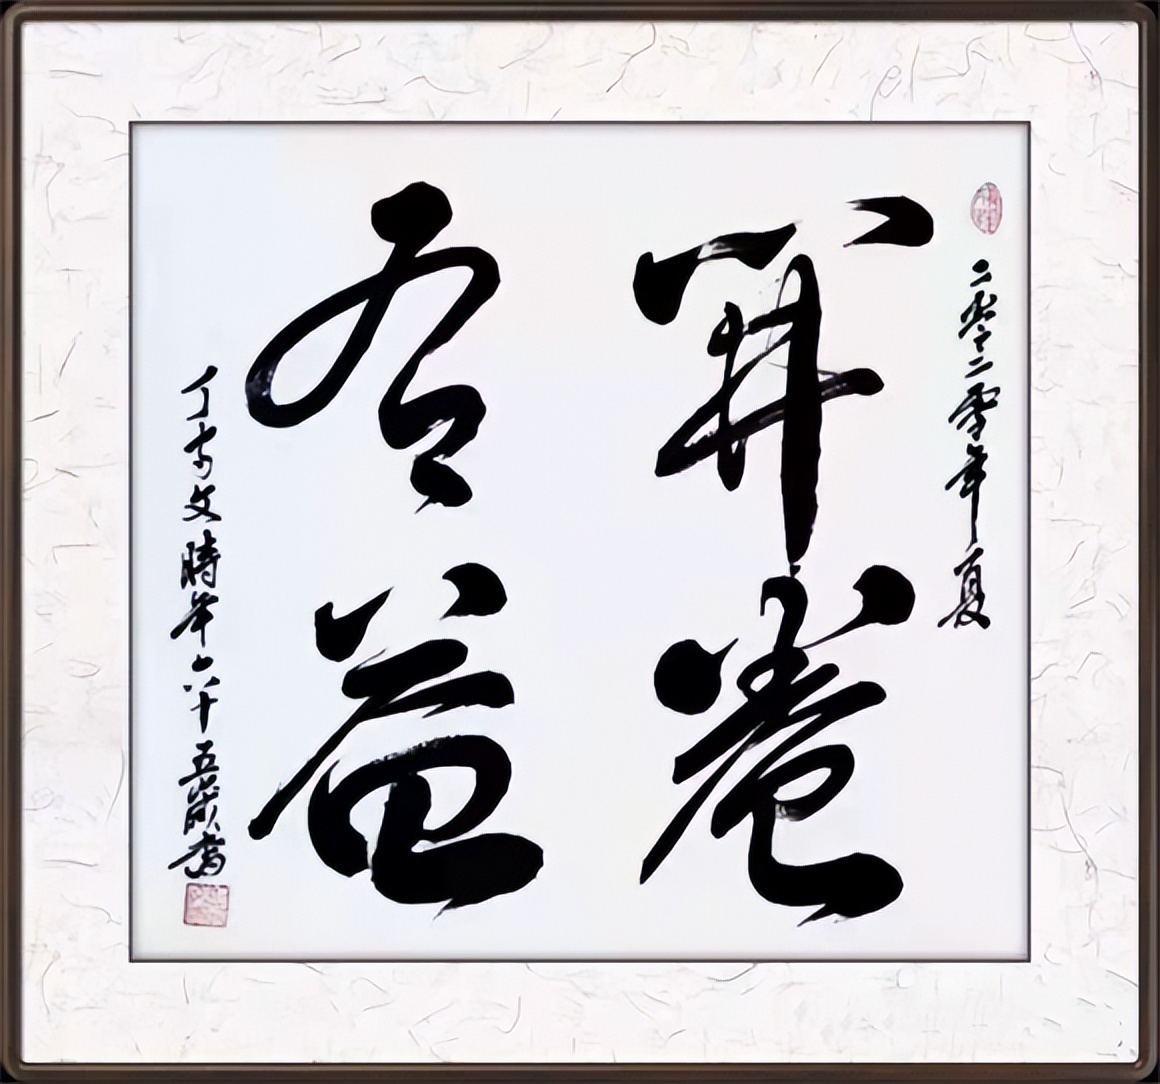 二零二零年夏
開卷
有益
丁文時年六十五歲書